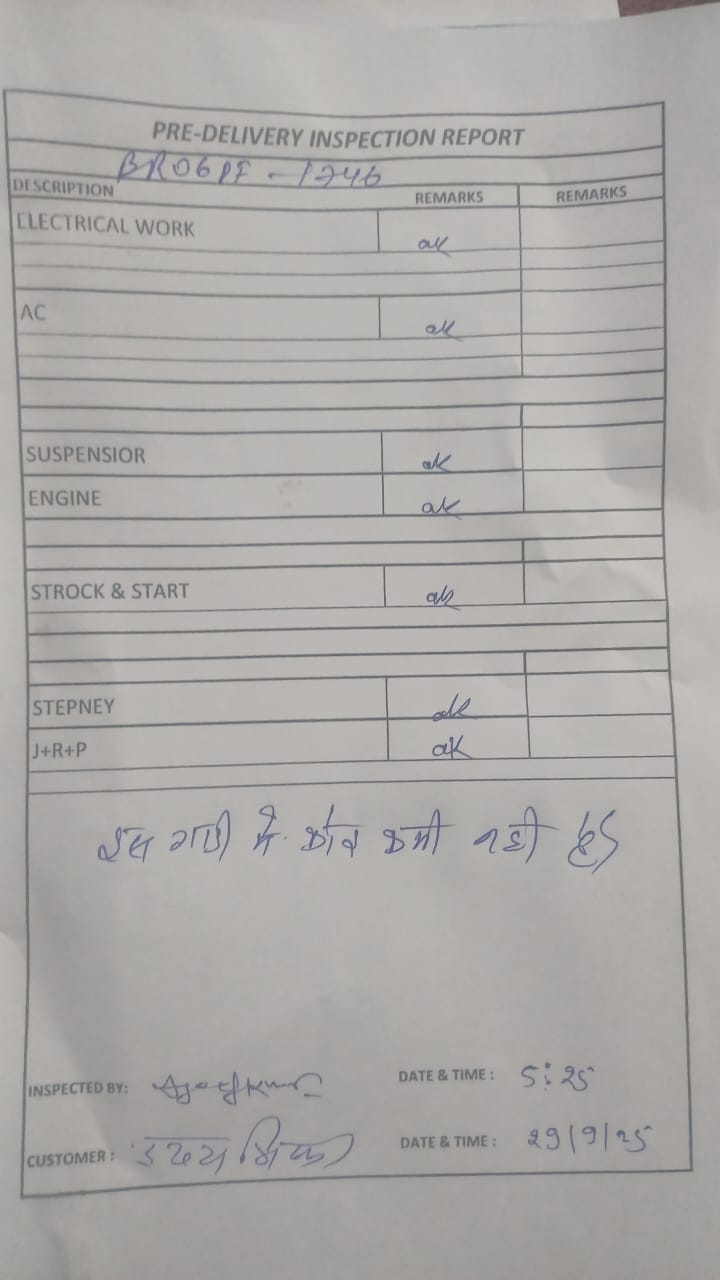 PRE-DELIVERY INSPECTION REPORT
BR06PF - 1746
DESCRIPTION REMARKS REMARKS
ELECTRICAL WORK ok
AC ok
SUSPENSIOR ok
ENGINE ok
STROCK & START ok
STEPNEY ok
J+R+P ok
इस गाडी में कोई कमी नही है
INSPECTED BY: DATE & TIME : 5:25
CUSTOMER : DATE & TIME : 29/9/25